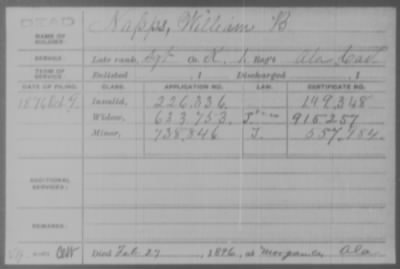 DEAD
NAME OF SOLDIER: Napps, William B
SERVICE: Late rank, Sgt Co. K, 1 Reg't Ala Cav
TERM OF SERVICE: Enlisted , 1 Discharged , 1
DATE OF FILING. CLASS. APPLICATION NO. LAW. CERTIFICATE NO.
1876 Invalid, 226.336 149.348
Widow, 633.753 915257
Minor, 738.846 557.184
ADDITIONAL SERVICES:
REMARKS:
Died Feb 27, 1896, at Ala